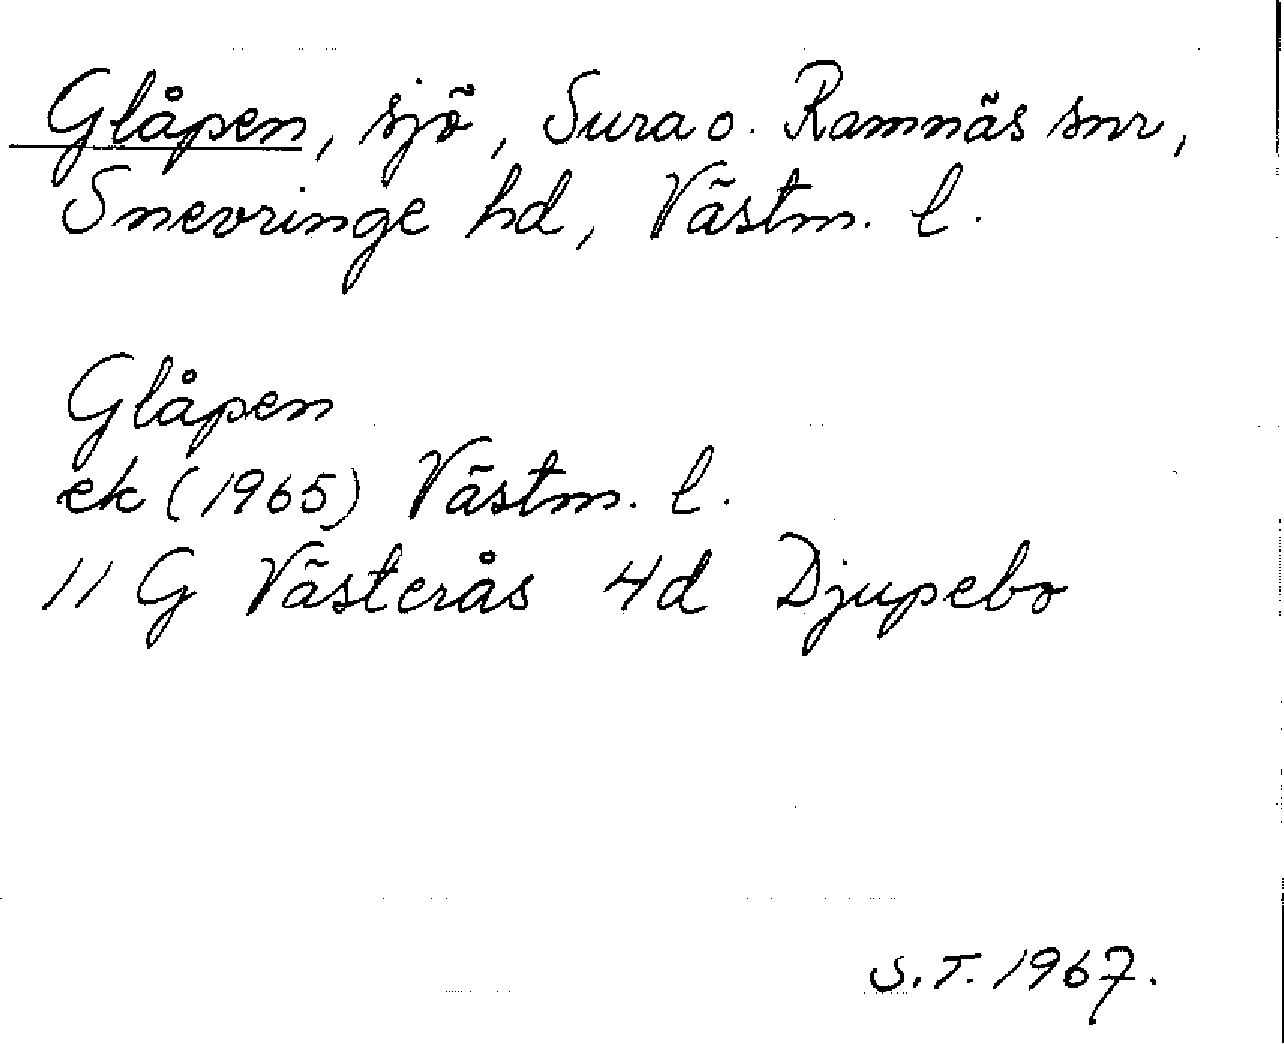 Glåpen, sjö, Sura o. Ramnäs snr,
Snevringe hd, Västm. l.
Glåpen
ek (1965) Västm. l.
11 G Västerås 4d Djupebo
S.T. 1967.